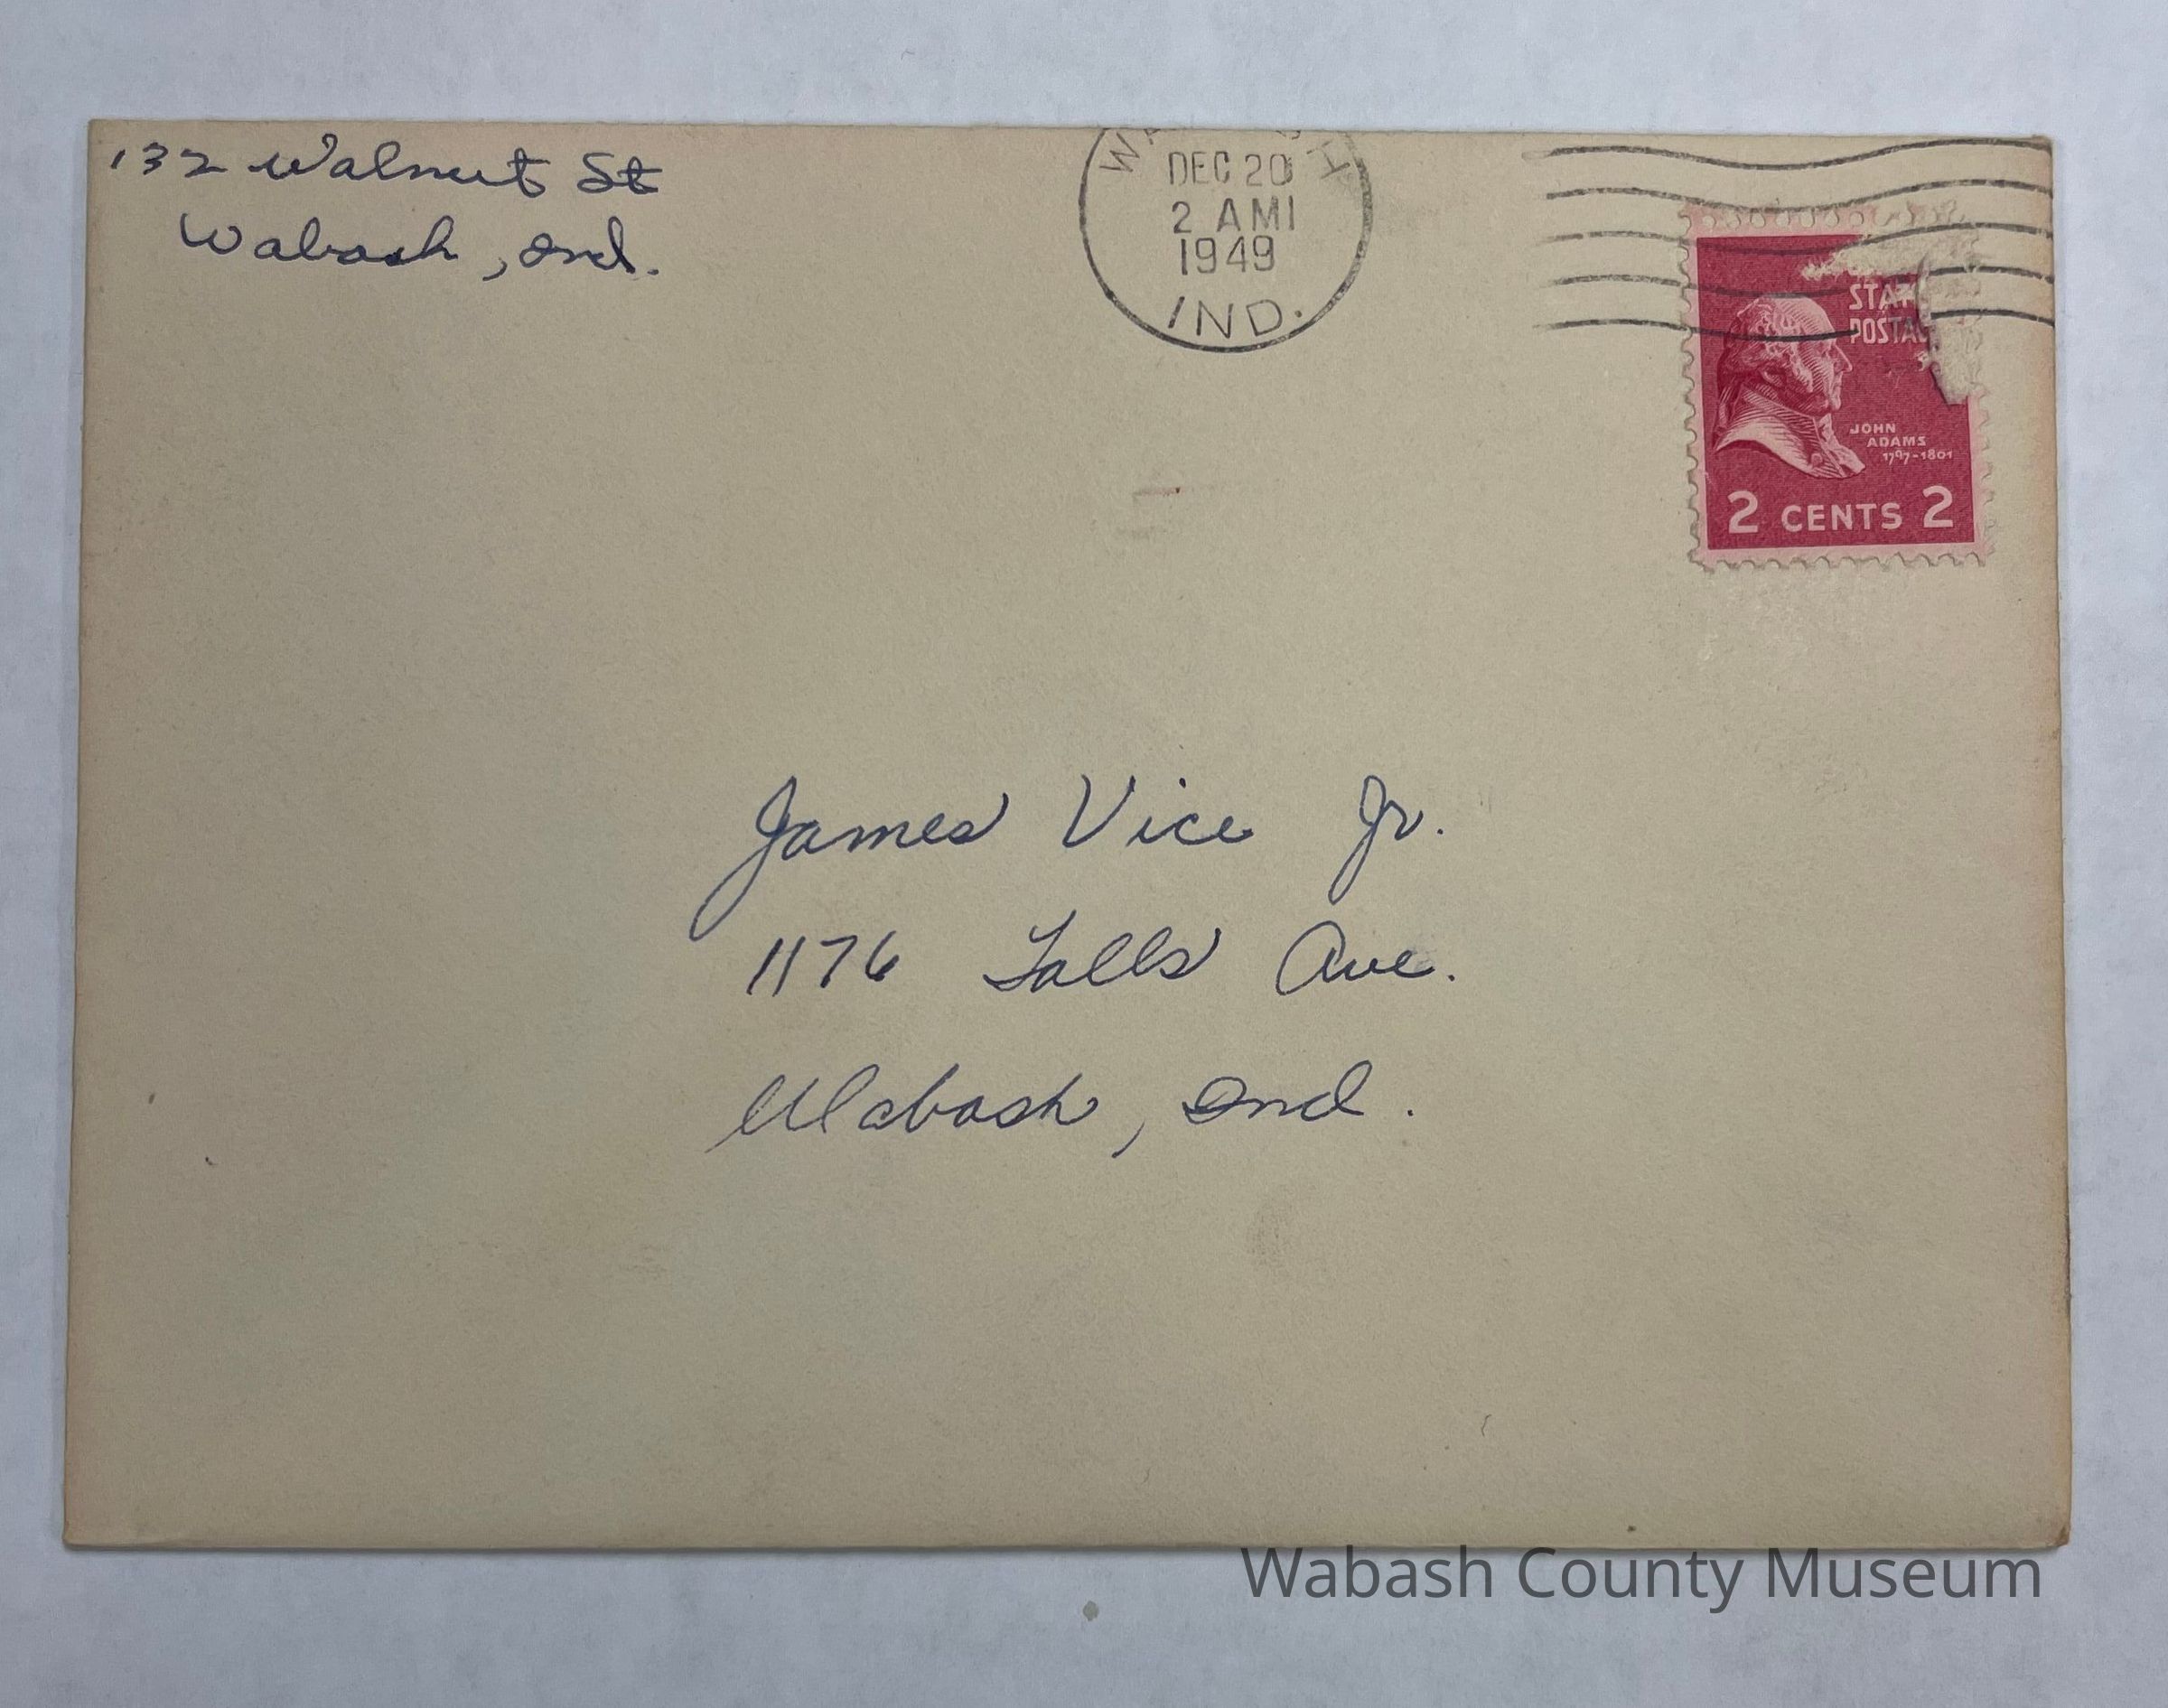 132 Walnut St
Wabash, Ind.
DEC 20
2 AM
1949
IND.
STAT
POSTAG
JOHN
ADAMS
1797-1801
2 CENTS 2
James Vice Jr.
1176 Falls Ave.
Wabash, Ind.
Wabash County Museum